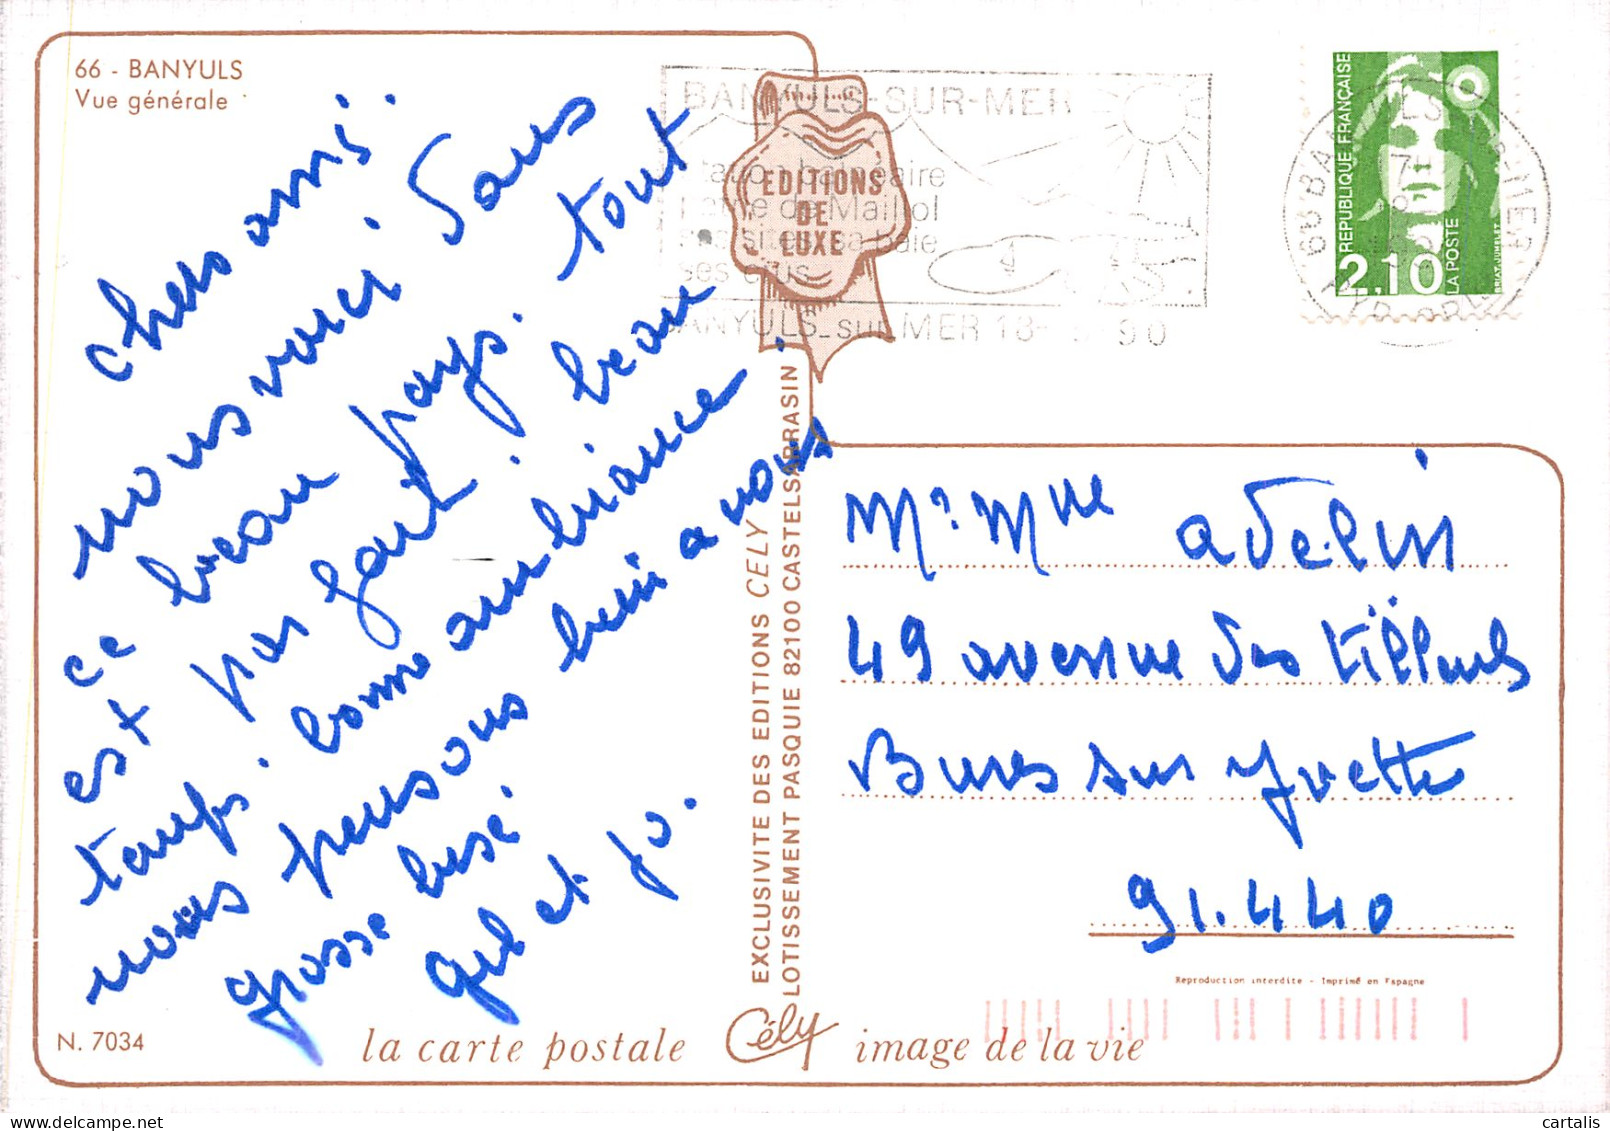 66 - BANYULS
Vue générale
chers amis.
nous voici dans
ce beau pays. tout
est parfait! beau
temps. bonne ambiance.
nous pensons bien à vous
grosse bise
gil et jo.
N. 7034
BANYULS-SUR-MER
Station balnéaire
de Maillol
ses sites sa baie
BANYULS-sur-MER 18- 90
EDITIONS
DE
LUXE
REPUBLIQUE FRANÇAISE
2,10
LA POSTE
EXCLUSIVITE DES EDITIONS CELY
LOTISSEMENT PASQUIE 82100 CASTELSARRASIN
Mr Mme adelin
49 avenue des tilleuls
Bures sur Yvette
91.440
Reproduction interdite - Imprimé en Espagne
la carte postale Cély image de la vie
cartalis
delcampe.net